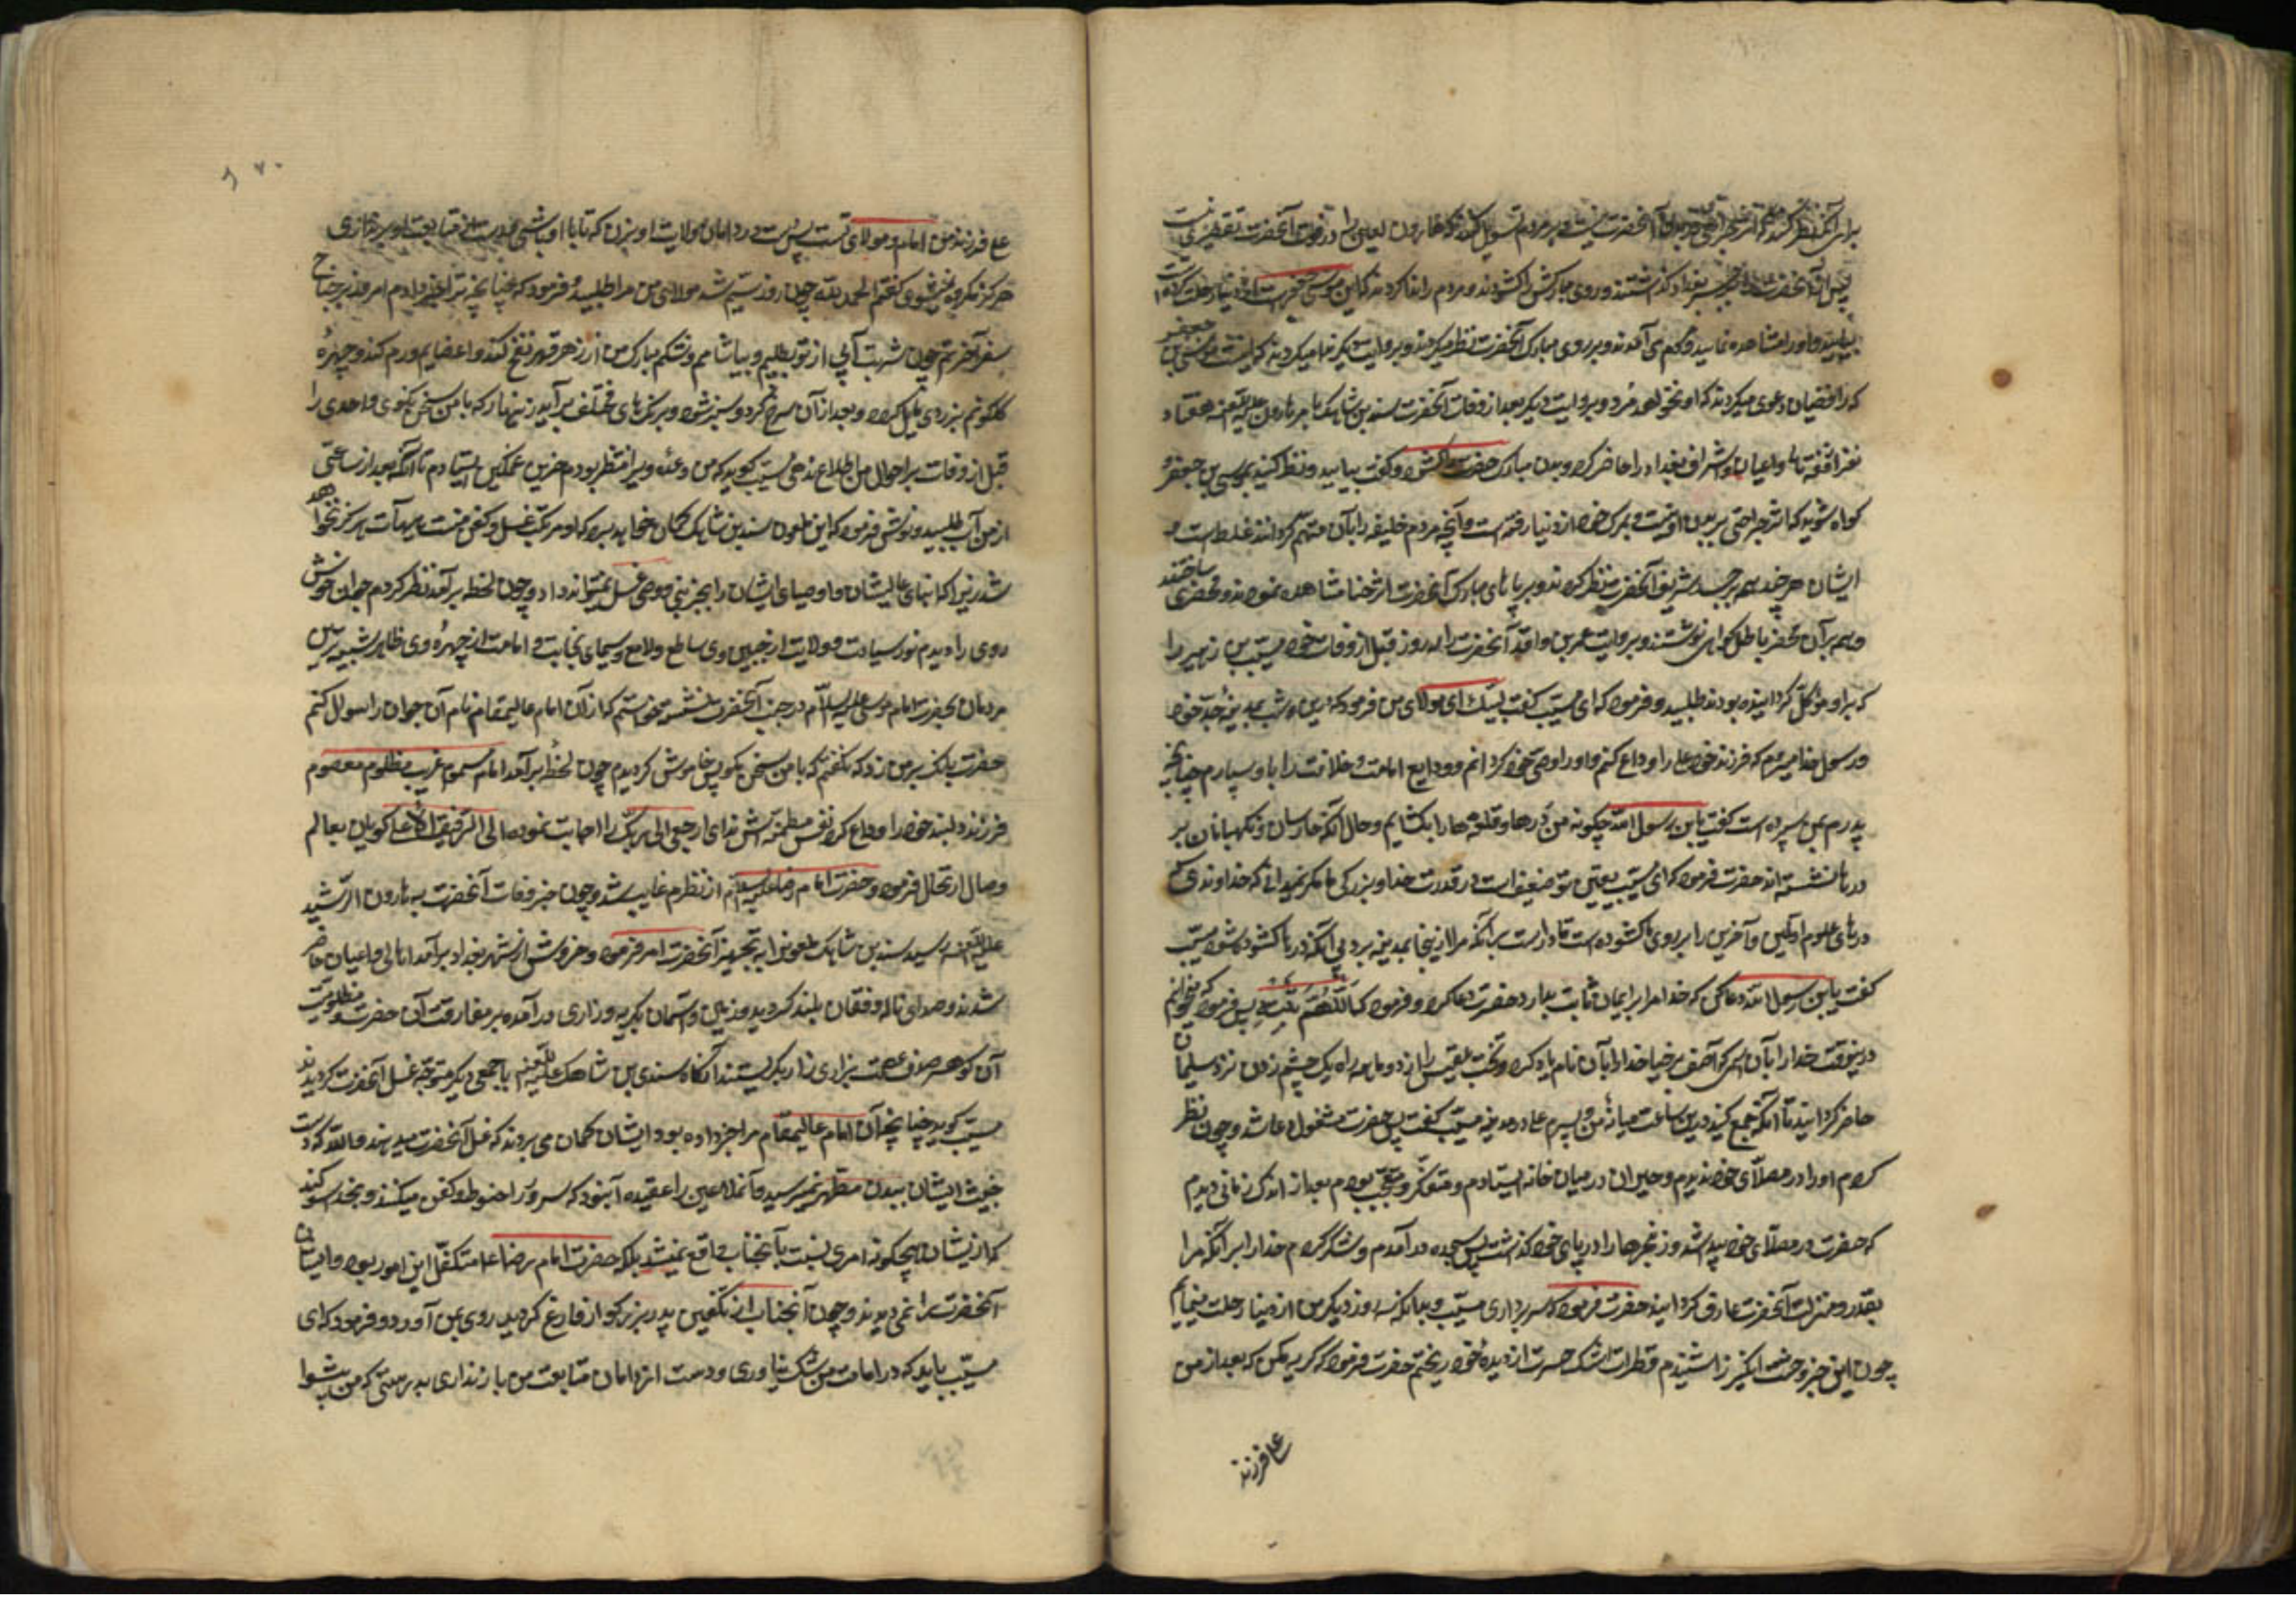 پس آنحضرت را بر جسر بغداد گذاشتند و روی مبارکش را گشودند و مردم را ندا کردند که این موسی بن جعفرست که از دنیا رحلت کرده است
بیایید و او را مشاهده نمایید مردم می آمدند و بر روی مبارک آنحضرت نظر میکردند و بروایت دیگر ندا میکردند که اینست موسی بن جعفر
که رافضیان دعوی میکردند که او نخواهد مرد و بروایت دیگر بعد از وفات آنحضرت سندی بن شاهک بامر هارون علیه اللعنه هفتاد
نفر از فقها و اعیان و اشراف بغداد را حاضر کرد و بدن مبارک حضرت را گشود و گفت بیایید و نظر کنید بموسی بن جعفر و
گواه شوید که اثر جراحتی بر بدن او نیست و بمرگ خود از دنیا رفته است و آنچه مردم خلیفه را بآن متهم گردانند غلط است
ایشان هر چند همه بر جسد شریف آنحضرت نظر کردند و بر پاهای مبارک آنحضرت اثر حنا مشاهده نمودند و محضری ساختند
و همه بر آن محضر باطل گواهی نوشتند و بروایت عمر بن واقد آنحضرت سه روز قبل از وفات خود مسیب بن زهیر را
که بر او موکل گردانیده بودند طلبید و فرمود که ای مسیب گفت لبیک ای مولای من فرمود که درین شب بمدینه جد خود
رسول خدا میروم که فرزند خود علی را وداع کنم و او را وصی خود گردانم و ودایع امامت و خلافت را باو سپارم چنانچه
پدرم بمن سپرده است گفت یابن رسول الله چگونه من درها و قفلها را بگشایم و حال آنکه حارسان و نگهبانان بر
درها نشسته اند حضرت فرمود که ای مسیب یقین تو ضعیف است در قدرت خدا و بزرگی ما مگر نمیدانی که خداوندی که
درهای علوم اولین و آخرین را بر روی ما گشوده است قادر است بر آنکه مرا از اینجا بمدینه برد بی آنکه درها گشوده شود مسیب
گفت یابن رسول الله دعا کن که خدا مرا بر ایمان ثابت بدارد حضرت دعا کرد و فرمود که اللهم ثبته پس فرمود که میخوانم
درینوقت خدا را بآن اسمی که آصف برخیا خدا را بآن نام یاد کرد و تخت بلقیس را از دو ماهه راه بیک چشم زدن نزد سلیمان
حاضر گردانید تا آنکه جمع کند درین ساعت میانه من و پسرم علی در مدینه مسیب گفت پس حضرت مشغول دعا شد و چون نظر
کردم او را در مصلای خود ندیدم و حیران در میان خانه ایستادم و متفکر و متعجب بودم بعد از اندک زمانی دیدم
که حضرت در مصلای خود پیدا شد و زنجیرها را در پای خود گذاشت پس بسجده در آمدم و شکر کردم خدا را بر آنکه مرا
بقدر و منزلت آنحضرت عارف گردانید حضرت فرمود که سر بردار ای مسیب و بدانکه سه روز دیگر من از دنیا رحلت مینمایم
چون این خبر وحشت انگیز را شنیدم قطرات اشک حسرت از دیده خود ریختم حضرت فرمود که گریه مکن که بعد از من
علی فرزند
۱۷۰
علی فرزند من امام و مولای تست پس دست در دامان ولایت او بزن که تا با او باشی و دست از متابعت او بر نداری
هرگز گمراه نمیشوی گفتم الحمد لله چون روز سیم شد مولای من مرا طلبید و فرمود که چنانچه ترا خبر دادم امروز بر جناح
سفر آخرتم چون شربت آبی از تو بطلبم و بیاشامم و شکم مبارک من از زهر قهر نفخ کند و اعضایم ورم کند و چهره
گلگونم بزردی مایل گردد و بعد از آن سرخ گردد و سبز شود و برنگهای مختلف برآید زینهار که با من سخن نگوی و احدی را
قبل از وفات بر احوال من اطلاع ندهی مسیب گوید که من وعده ویرا منتظر بودم حزین و غمگین ایستادم تا آنکه بعد از ساعتی
از من آب طلبید و نوشید فرمود که این ملعون سندی بن شاهک گمان خواهد برد که او مرتکب غسل و کفن منست هیهات هرگز نخواهد
شد زیرا که انبیای عالیشان و اوصیای ایشان را بجز نبی و وصی غسل نمیتواند داد و چون لحظه برآمد نظر کردم جوان خوش
روی را دیدم نور سیادت و ولایت از جبین وی ساطع و لامع و سیمای نجابت و امامت از چهره وی ظاهر شبیه ترین
مردمان بحضرت امام موسی علیه السلام در جنب آنحضرت نشسته خواستم که از آن امام عالیمقام نام آن جوان را سوال کنم
حضرت بانک بر من زد که نگفتم که با من سخن نگوی پس خاموش گردیدم چون لحظه برآمد امام مسموم غریب مظلوم معصوم
فرزند دلبند خود را وداع کرد و نفس مطمئنه اش ندای ارجعی الی ربک را اجابت نموده الی الرفیق الاعلی گویان بعالم
وصال ارتحال فرمود و حضرت امام رضا علیه السلام از نظرم غایب شد و چون خبر وفات آنحضرت به هارون الرشید
علیه اللعنه رسید سندی بن شاهک ملعون را به تجهیز آنحضرت امر فرمود و خروش از شهر بغداد برآمد اهالی و اعیان حاضر
شدند و صدای ناله و فغان بلند گردید و زمین و آسمان بگریه و زاری در آمده بر مفارقت آن حضرت و مظلومیت
آن گوهر صدف عصمت بزاری زار بگریستند آنگاه سندی بن شاهک علیه اللعنه با جمعی دیگر متوجه غسل آنحضرت گردیدند
مسیب گوید چنانچه آن امام عالیمقام مرا خبر داده بود ایشان گمان می بردند که غسل آنحضرت میدهند والله که دست
خبیث ایشان ببدن مطهرش نمیرسید و آنملاعین را عقیده آن بود که سرور را حنوط و کفن میکنند و بخدا سوگند
که از ایشان هیچگونه امری نسبت بآنجناب واقع نمیشد بلکه حضرت امام رضا ع متکفل این امور بود و ایشان
آنحضرت را نمی دیدند و چون آنجناب از تکفین پدر بزرگوار فارغ گردید روی بمن آورد و فرمود که ای
مسیب باید که در امامت من شک نیاوری و دست از دامان متابعت من باز نداری بدرستی که من پیشوا